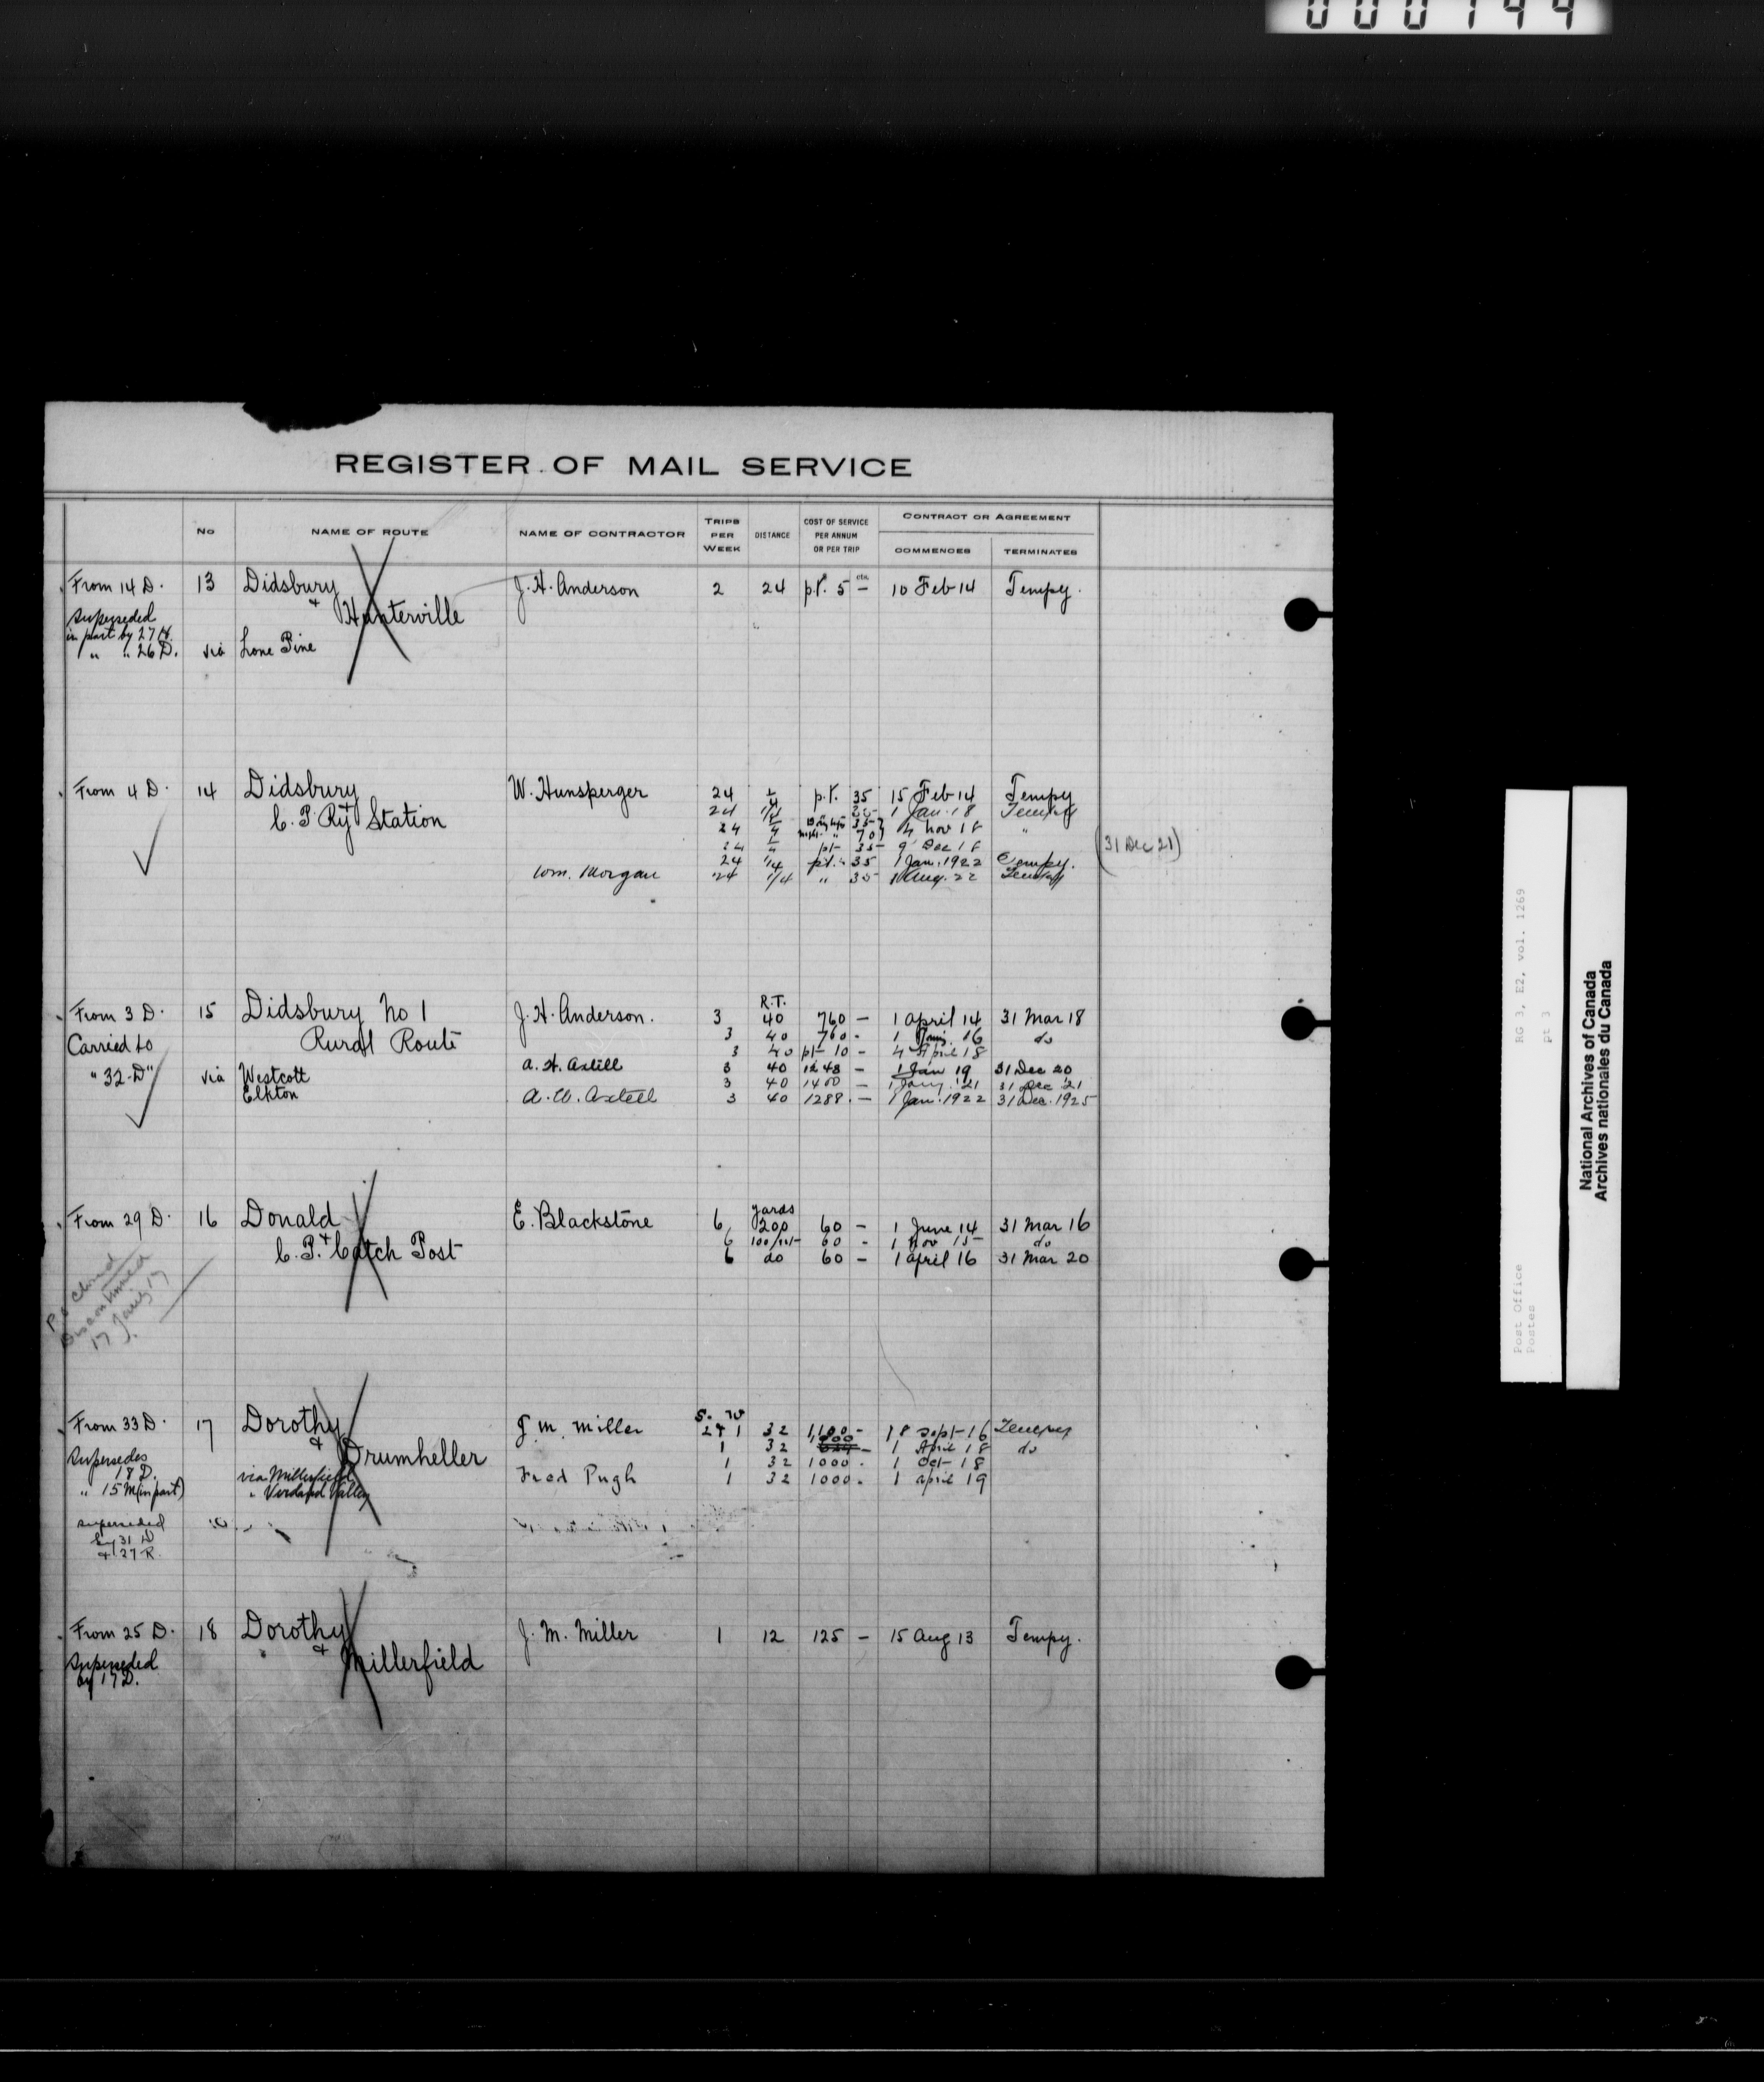 000144
REGISTER OF MAIL SERVICE
No
NAME OF ROUTE
NAME OF CONTRACTOR
TRIPS PER WEEK
DISTANCE
COST OF SERVICE PER ANNUM OR PER TRIP
CONTRACT OR AGREEMENT
COMMENCES
TERMINATES
From 14 D. 13 Didsbury J. H. Anderson 2 24 p.t. 5 cts. — 10 Feb 14 Tempy.
+ Hunterville
Superseded
in part by 27 H.
" " 26 D. via Lone Pine
From 4 D. 14 Didsbury W. Hunsperger 24 1/4 p.t. 35 15 Feb 14 Tempy
+
C. P. Ry Station 24 1/4 1 Jan. 18 Tempy
24 35 4 Nov 18 "
70
24 pt- 35 9 Dec 18
24 1/4 pt. 35 1 Jan. 1922 Tempy. (31 Dec 21)
Wm. Morgan 24 1/4 " 35 1 Aug. 22 Tempy
R.T.
From 3 D. 15 Didsbury No 1 J. H. Anderson. 3 40 760 — 1 April 14 31 Mar 18
Carried to Rural Route 3 40 760 - 1 16 do
3 40 pt- 10 - 4 April 18
"32-D" via Westcott A. H. Axtell 3 40 1248 — 1 Jan 19 31 Dec 20
Elkton 3 40 1400 — 1 Jany. '21 31 Dec '21
A. H. Axtell 3 40 1288. — 1 Jan. 1922 31 Dec. 1925
yards
From 29 D. 16 Donald E. Blackstone 6 200 60 — 1 June 14 31 Mar 16
+ C. P. Catch Post 6 60 - 1 Nov 15 do
6 do 60 — 1 April 16 31 Mar 20
P O Closed
Discontinued
17 Jany 17
S. W
From 33 D. 17 Dorothy J. M. Miller 2 + 1 32 1,100 - 18 Sept-16 Tempy
+ Drumheller 1 32 900 — 1 April 18 do
Supersedes
18 D. 1 32 1000. 1 Oct- 18
" 15 M (in part) via Millerfield Fred Pugh 1 32 1000. 1 April 19
" Verdant Valley
Superseded
by 31 D
+ 27 R.
From 25 D. 18 Dorothy J. M. Miller 1 12 125 — 15 Aug 13 Tempy.
+ Millerfield
Superseded
by 17 D.
RG 3, E2, vol. 1269
pt 3
Post Office
Postes
National Archives of Canada
Archives nationales du Canada